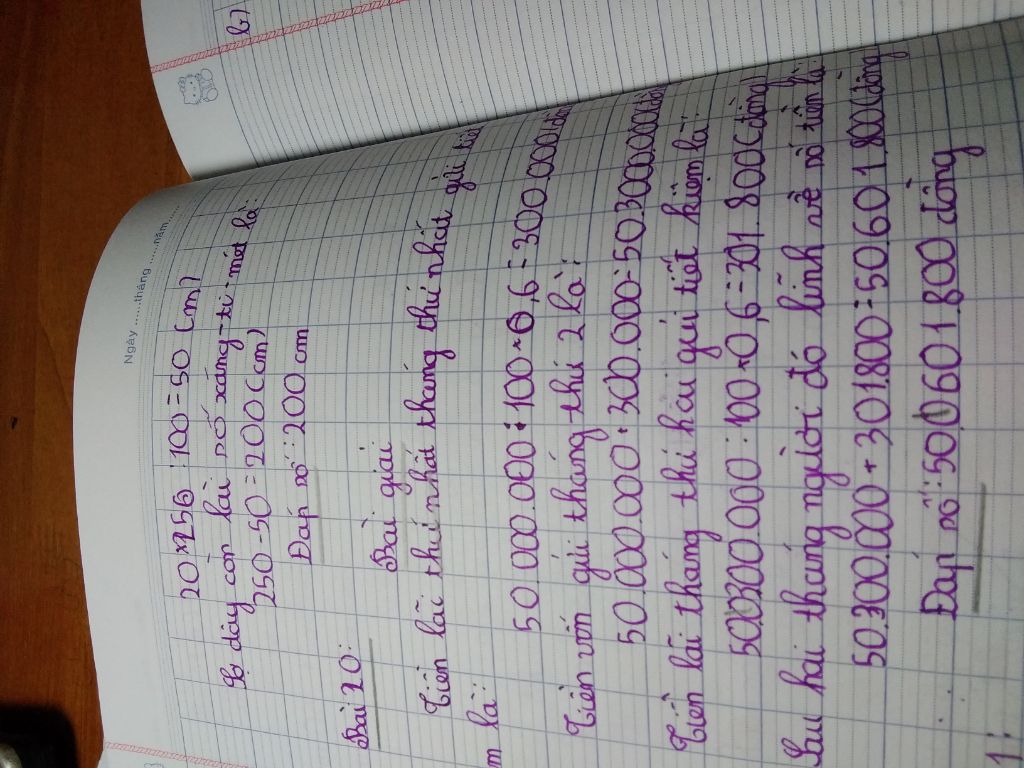 Ngày ......tháng ......năm ......
20 × 256 : 100 = 50 (cm)
Sợ dây còn lài số xăng-ti-mét là:
250 - 50 = 200 (cm)
Đáp số: 200 cm
Bài 20:
Bài giải:
Tiền lãi thứ nhất tháng thứ nhất gửi tiết
m là:
50.000.000 : 100 × 0,6 = 300.000 (đồn
Tiền vốn gửi tháng thứ 2 là:
50.000.000 + 300.000 = 50.300.000 (đồ
Tiền lãi tháng thứ hai gửi tiết kiệm là:
50.300.000 : 100 × 0,6 = 301.800 (đồng)
Sau hai tháng người đó lĩnh về số tiền là
50.300.000 + 301.800 = 50.601.800 (đồng
Đáp số: 50.601.800 đồng
1:
b)